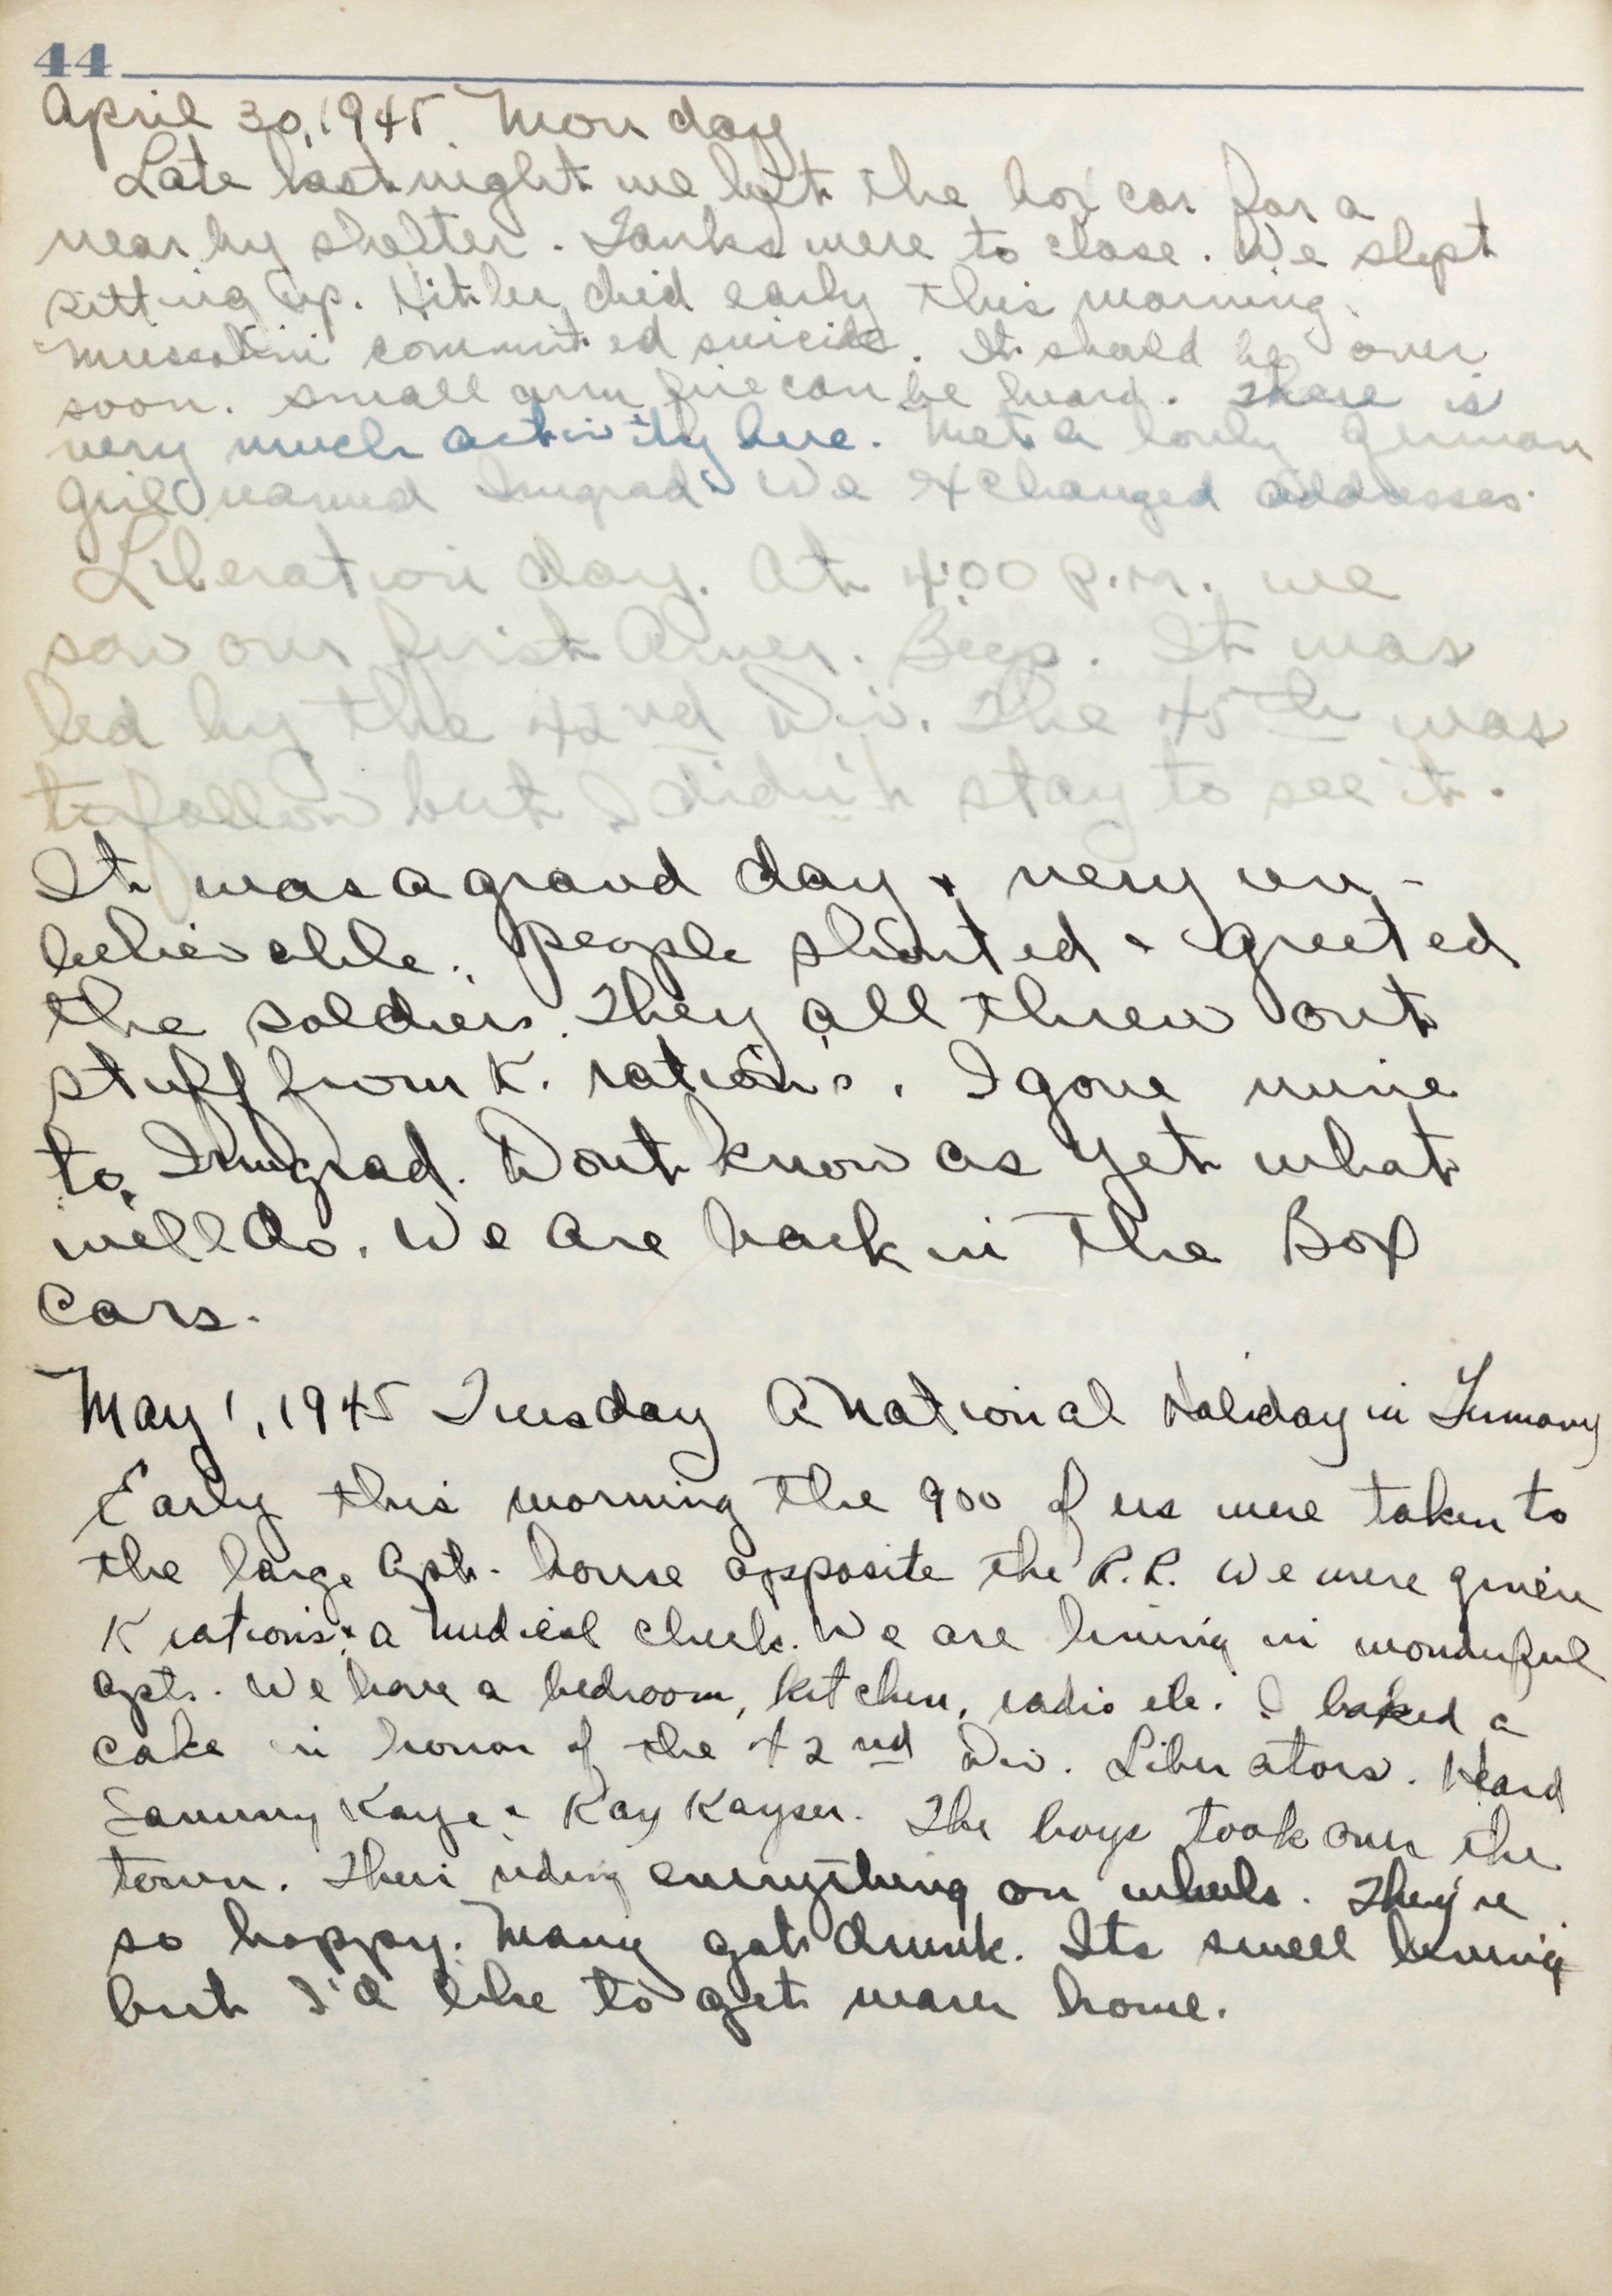 44
April 30, 1945 Monday
Late last night we left the box car for a
near by shelter. Tanks were to close. We slept
sitting up. Hitler died early this morning.
Mussolini committed suicide. It should be over
soon. small arm fire can be heard. There is
very much activity here. Met a lovely German
girl named Imgrad. We exchanged addresses.
Liberation day. At 4:00 p.m. we
saw our first Amer. Jeep. It was
led by the 42nd Div. The 45th was
to follow but I didn't stay to see it.
It was a grand day & very un-
believable. People shouted & greeted
the soldiers. They all threw out
stuff from K. rations. I gave mine
to Imgrad. Dont know as yet what
we'll do. We are back in the Box
Cars.
May 1, 1945 Tuesday A National Holiday in Germany
Early this morning the 900 of us were taken to
the large apt. house opposite the R.R. We were given
K rations & a medical check. We are living in wonderful
apts. We have a bedroom, kitchen, radio etc. I baked a
cake in honor of the 42nd Div. Liberators. Heard
Sammy Kaye & Kay Kayser. The boys took over the
town. Their riding everything on wheels. They're
so happy. Many got drunk. Its swell living
but I'd like to get near home.